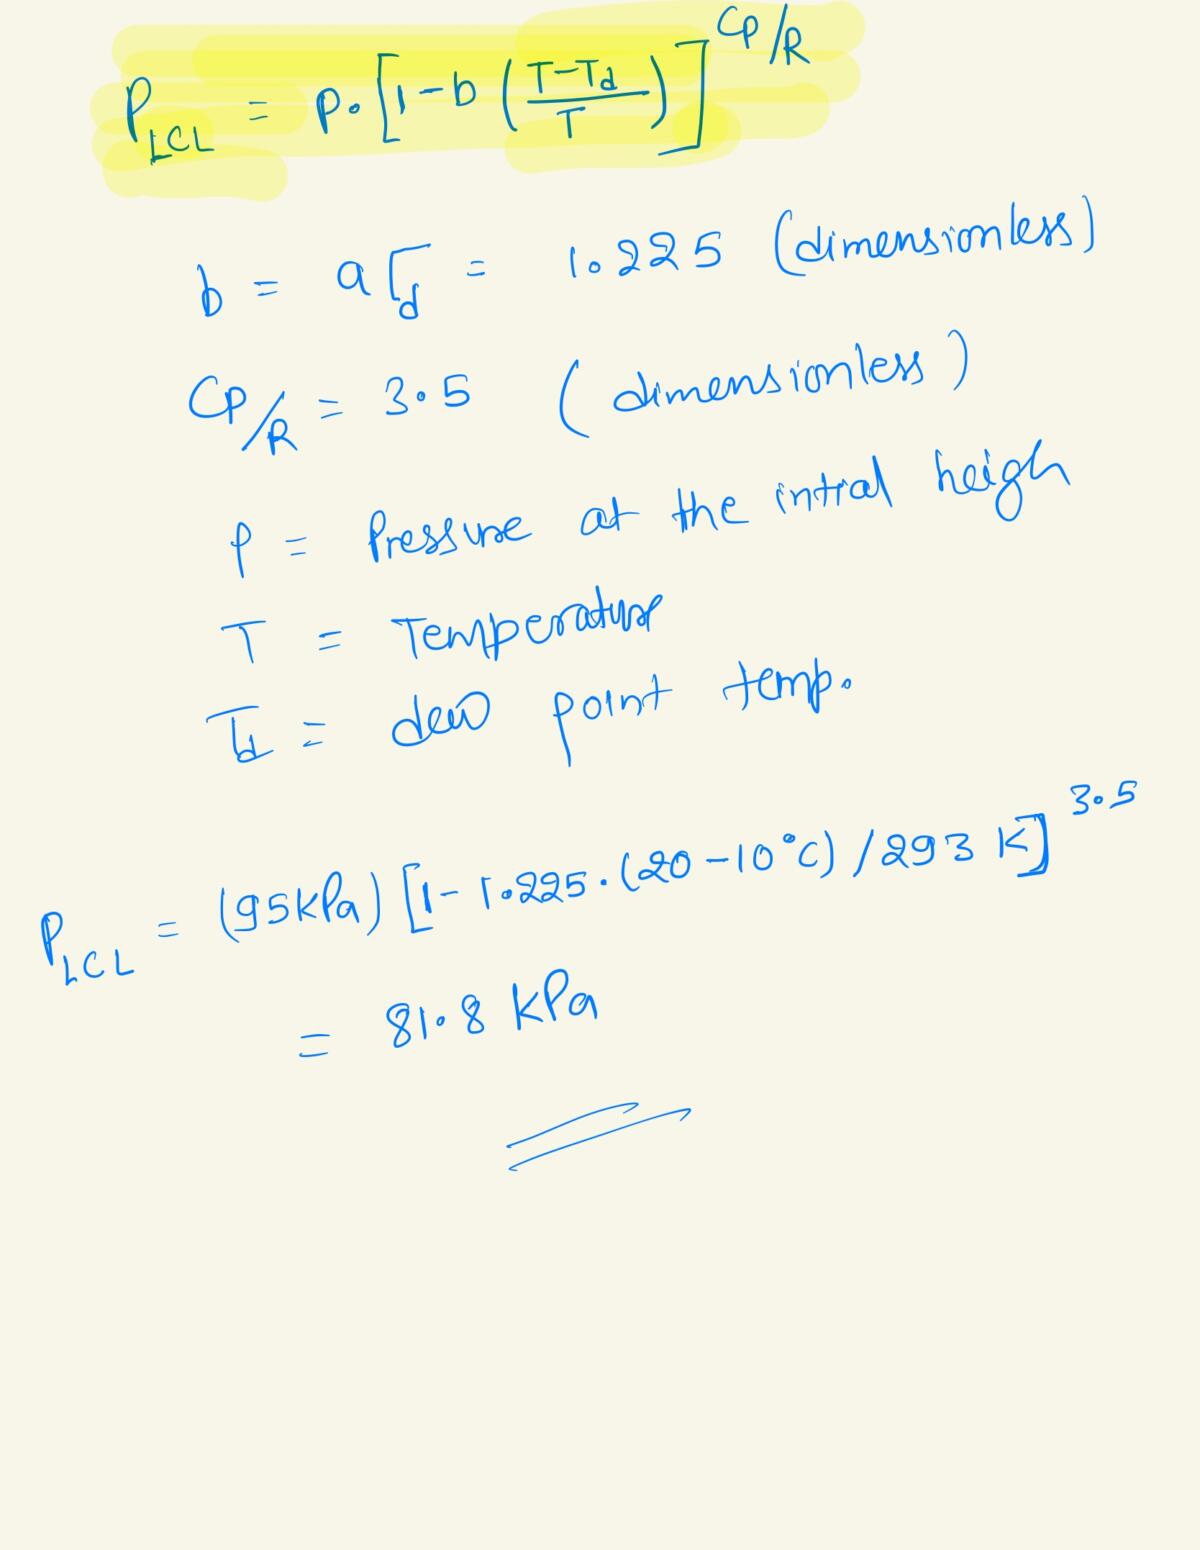 P_LCL = P · [1 - b ((T - Td) / T)]^Cp/R
b = a Γd = 1.225 (dimensionless)
Cp/R = 3.5 (dimensionless)
P = Pressure at the intial heigh
T = Temperature
Td = dew point temp.
P_LCL = (95kPa) [1 - 1.225 · (20 - 10°C) / 293 K]^3.5
= 81.8 kPa